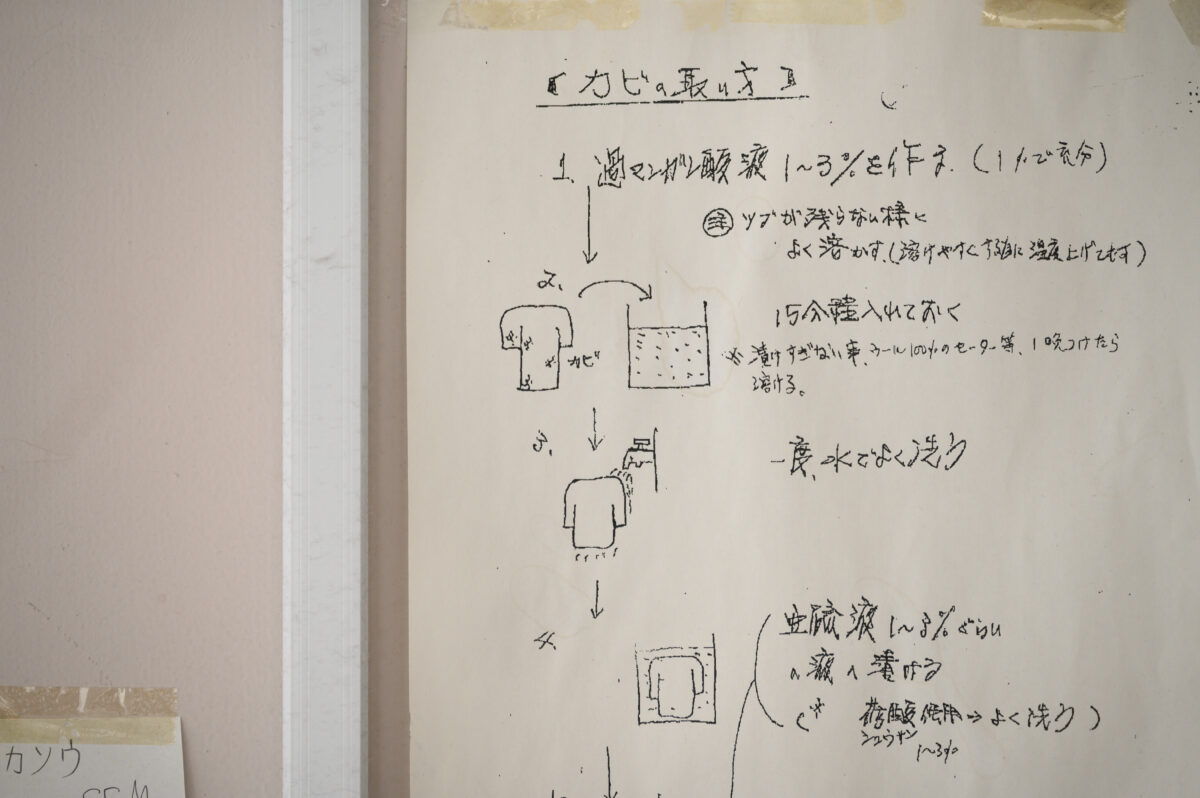 【カビの取り方】
1. 過マンガン酸液 1〜3%を作る.(1%で充分)
㊟ ツブが残らない様に
よく溶かす.(溶けやすくする為に温度上げても可)
2.
カビ
15分程入れておく
※ 漬けすぎない事、ウール100%のセーター等、1晩つけたら
溶ける。
3.
一度、水でよく洗う
4.
亜硫液 1〜3%ぐらい
の液へ漬ける
(※ 蓚酸使用→よく洗う)
シュウサン
1〜3%
カソウ